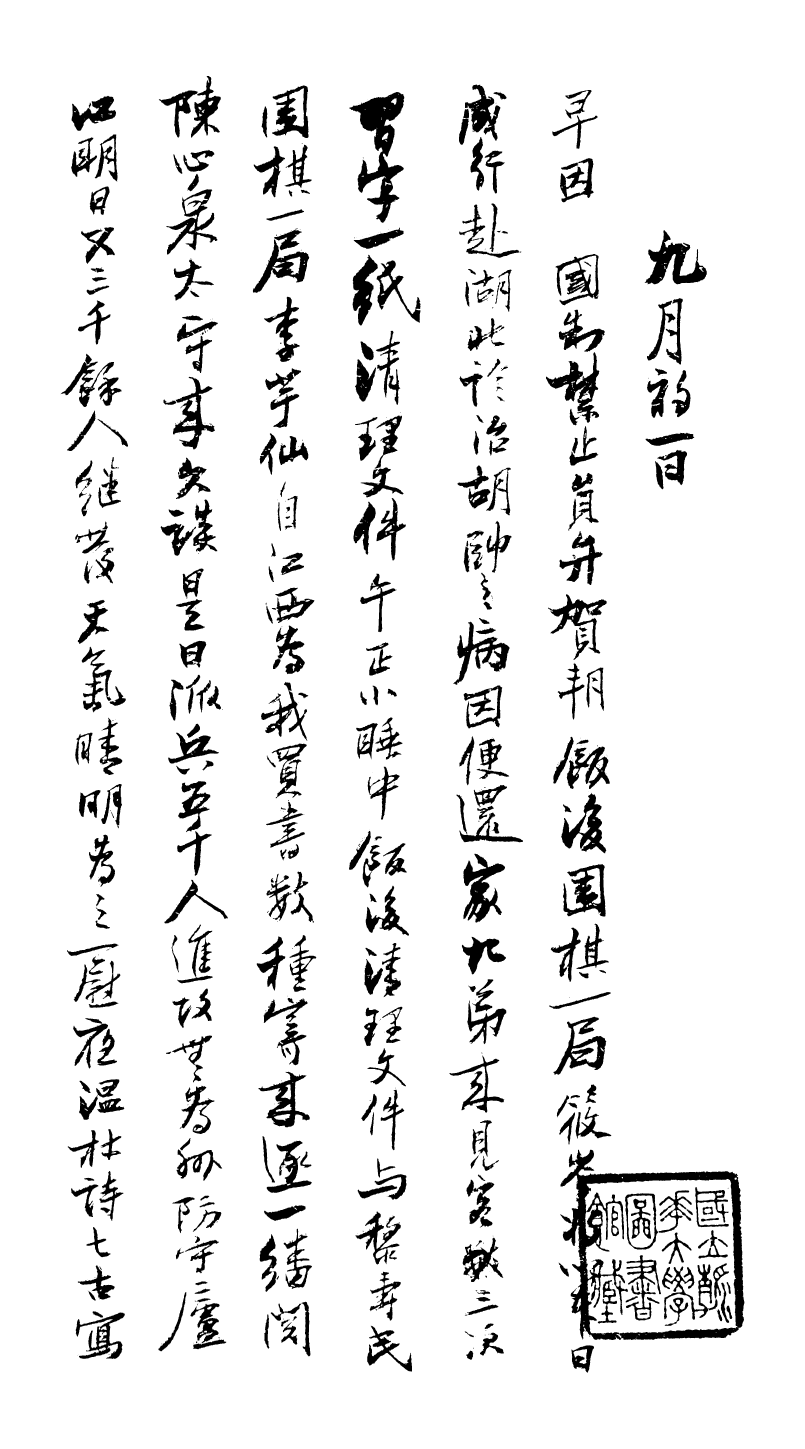 九月初一日
早因　國制禁止員弁賀朔飯後圍棋一局筱岑將以本日
成行赴湖北診治胡帥之病因便還家九弟來見客數三次
習字一紙清理文件午正小睡中飯後清理文件与黎壽民
圍棋一局李芋仙自江西為我買書數種寄來逐一繙閱
陳心泉太守來久談是日派兵五千人進攻無為州防守廬
江明日又三千餘人繼發天氣晴明為之一慰夜溫杜詩七古寫
國立清華大學圖書館藏